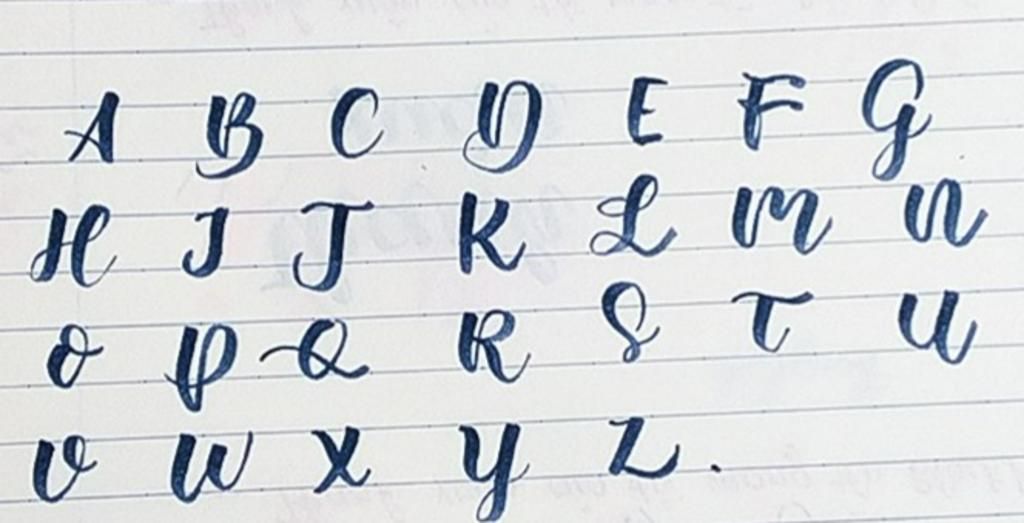 A B C D E F G
H I J K L M N
O P Q R S T U
V W X Y Z .